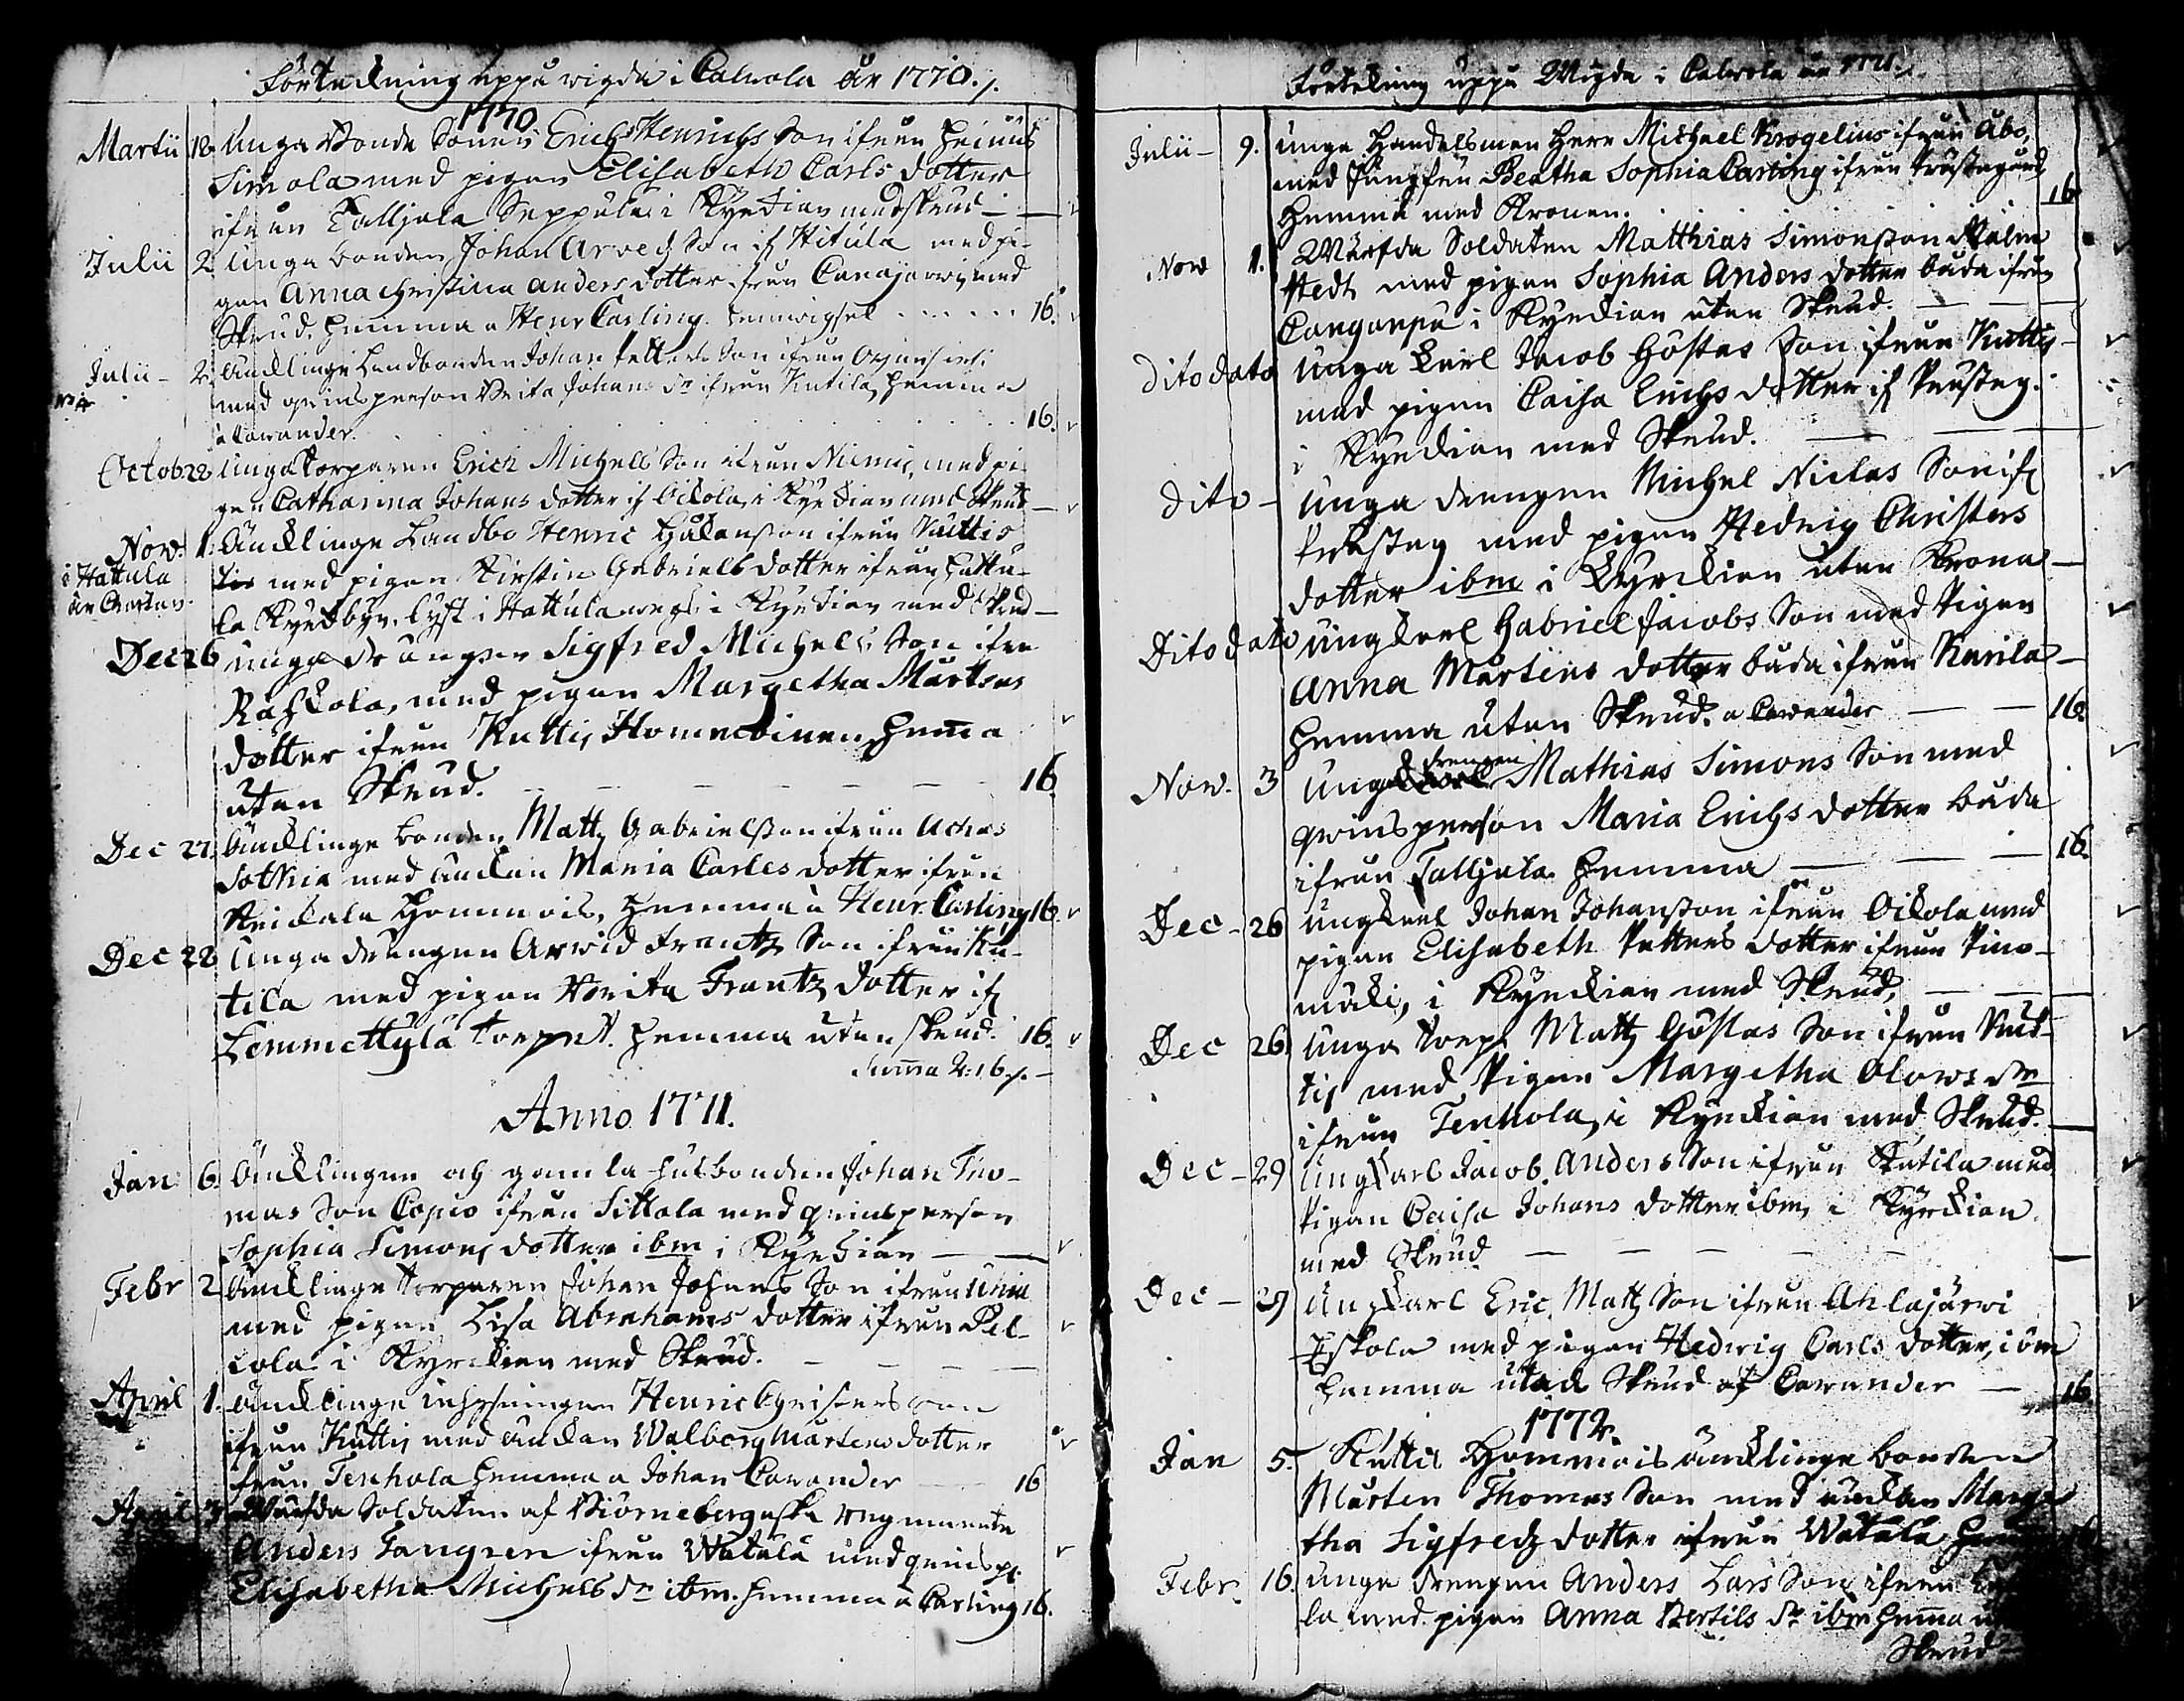 Förteckning uppå wigda i Calvola År 1770./.
1770
Martii 18 Unga Bonde Sonen Erich Henrichs Son ifrån Heinus
Simola med pigan Elisabeth Carls dotter
ifrån Talljala Seppälä i Kyrckian med skrud
Julii 2 Unga bonden Johan Arvedz Son if Hitula med pi-
gan Anna Christina Anders dotter ifrån Canajärwi med
Skrud hemma a Henr Carling hemwigsel 16.
Julii - 2. Änklinge Landbonden Johan Petters Son ifrån
med qwinsperson Brita Johans dr ifrån Kutila, hemma
a Cawander. 16.
Octob. 28 Unga torparen Erich Michels Son ifrån Niemis, med pi-
gan Catharina Johans dotter if Oikola, i Kyrckian med Skrud
Nov. 1. Äncklinge Landbo Henric Håkansson ifrån Kuttis
i Hattula med pigan Kirstin Gabriels dotter ifrån Hattu-
la Kyrckbyn. lyst i Hattula i Kyrckian med Skrud
Dec 26 Unga drängen Sigfred Michels Son ifrn
Raskola, med pigan Margetha Mårtens
dotter ifrån Kuttis Hemma
utan Skrud. 16.
Dec 27. Äncklinge bonden Matts Gabrielsson ifrån Achas
Sottkia med änckan Maria Carls dotter ifrån
Keikala Hommois, hemma a Henr. Carling 16.
Dec 28 Unga drängen Arwid Frantz Son ifrån Ku-
tila med pigan Brita Frantz dotter if
Lemmettylä torpet. hemma utan skrud. 16.
Summa 2:16./.
Anno 1771.
Jan 6. Äncklingen och gamla husbonden Johan Tho-
mas Son Copio ifrån Sittola med qwinsperson
Sophia Simons dotter ibm i Kyrckian
Febr 2 Äncklinge torparen Johan Johans Son ifrån Uhia
med pigan Lisa Abrahams dotter ifrån Pel-
cola i Kyrckian med Skrud.
April 1. Äncklinge inhysningen Henric Christersson
ifrån Kuttis med änckan Walborg Mårtens dotter
ifrån Tenhola hemma a Johan Cawander 16
April 3. Wärfda Soldaten af Biörneborgska regemente
Anders Tangren ifrån Watula med qwinsp.
Elisabetha Michels dr ibm. hemma a Carling 16.
Förtekning uppå Wigda i Calvola år 1771./.
Julii - 9. Unga Handelsman Herr Michael Krogelius ifrån Åbo,
med Jungfru Beatha Sophia Carling ifrån Prästegård
Hemma med Kronan. 16
Nov 1. Wärfda Soldaten Matthias Simonsson Malm
stedt med pigan Sophia Anders dotter båda ifrån
Cangarpä i Kyrckian utan Skrud.
Dito dato Unga Karl Jacob Göstas Son ifrån Kuttis
med pigan Caisa Erichs dotter if Prusteg.
i Kyrckian med Skrud.
Dito - Unga drengen Michel Niclas Son if
Pråsteg med pigan Hedvig Christers
dotter ibm i Kyrckian utan Krona
Dito dato Ungkarl Gabriel Jacobs Son med Pigan
Anna Mårtens dotter båda ifrån Karila
hemma utan Skrud. a Cavander 16.
Nov. 3 Unga drengen Mathias Simons Son med
qwinsperson Maria Erichs dotter båda
ifrån Talljala hemma 16.
Dec - 26 Ungkarl Johan Johansson ifrån Oikola med
pigan Elisabeth Petters dotter ifrån Pino-
mäki, i Kyrckian med Skrud,
Dec 26. Unga torp. Matts Göstas Son ifrån Kut-
tis med Pigan Margetha Olows dr
ifrån Tenhola, i Kyrckian med Skrud.
Dec - 29 Ungkarl Jacob Anders Son ifrån Kutila med
Pigan Caisa Johans dotter ibm, i Kyrckian
med Skrud
Dec - 29 Ungkarl Eric Matts Son ifrån Ahlajärwi
Eskola med pigan Hedwig Carls dotter, ibm
hemma utan Skrud af Cawander 16.
1772.
Jan 5. Kuttis Hommois äncklinge bonden
Mårten Thomas Son med änckan Marge
tha Sigfredz dotter ifrån Watula
Febr. 16. Unga drengen Anders Lars Son ifrån
la med pigan Anna Bertils dr ibm hemma
Skrud